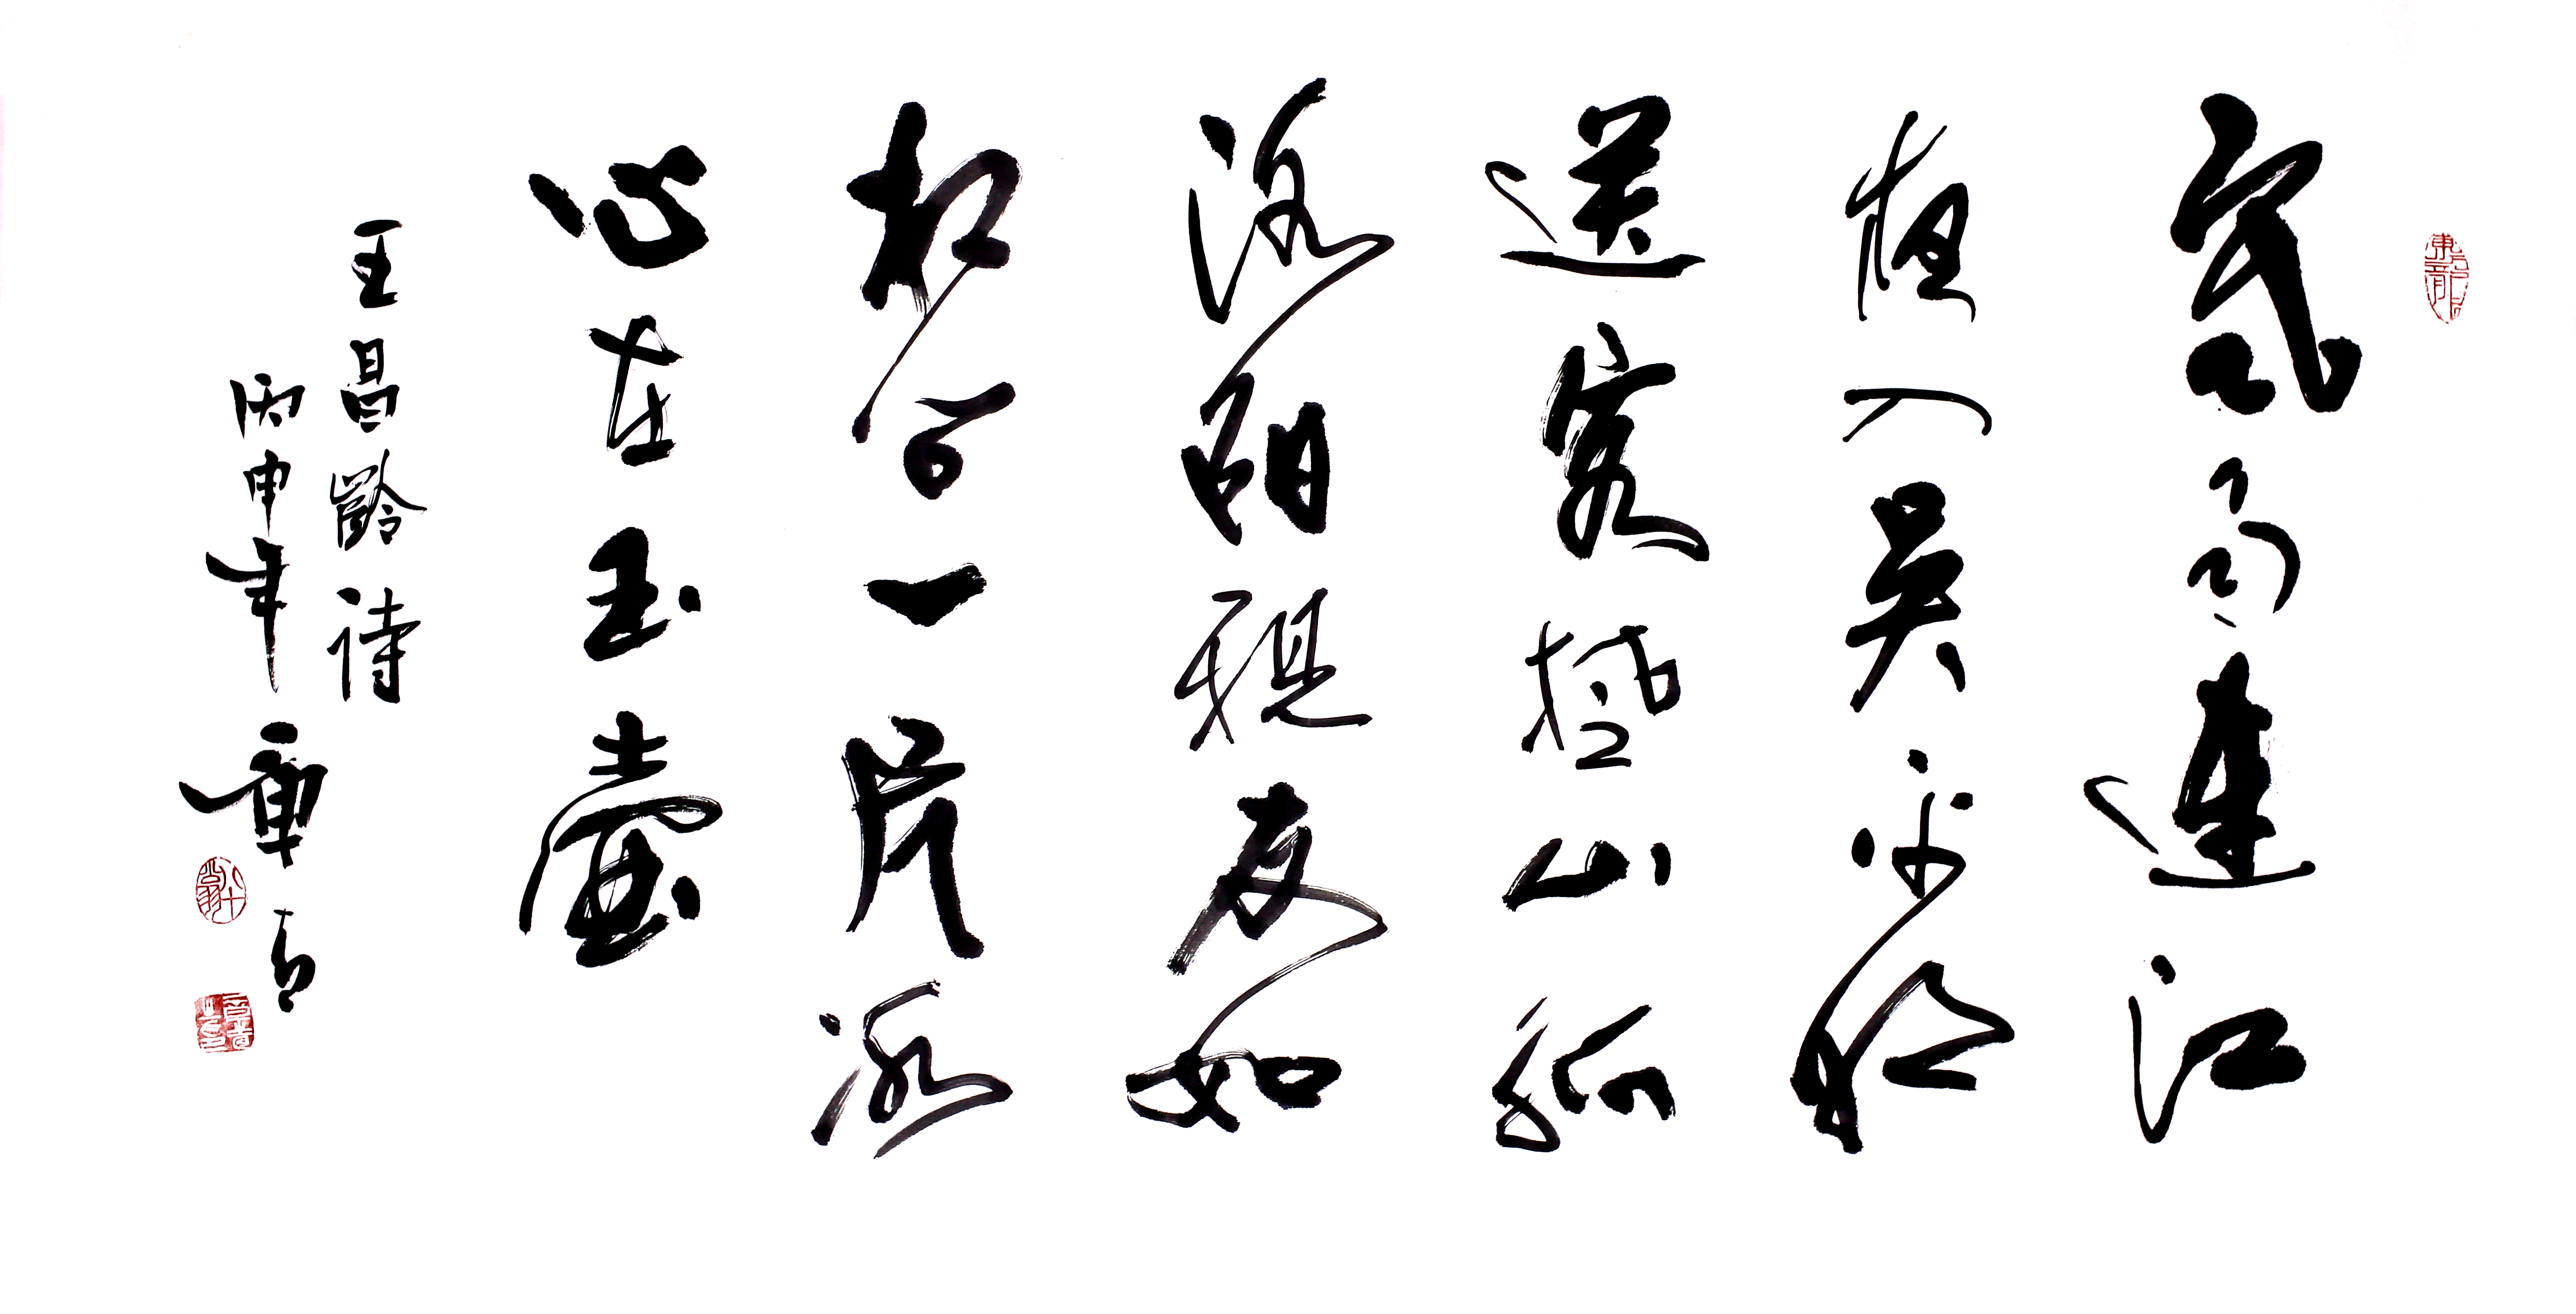 寒雨連江
夜入吴平明
送客楚山孤
洛阳親友如
相问一片冰
心在玉壶
王昌齡诗
丙申年 章青